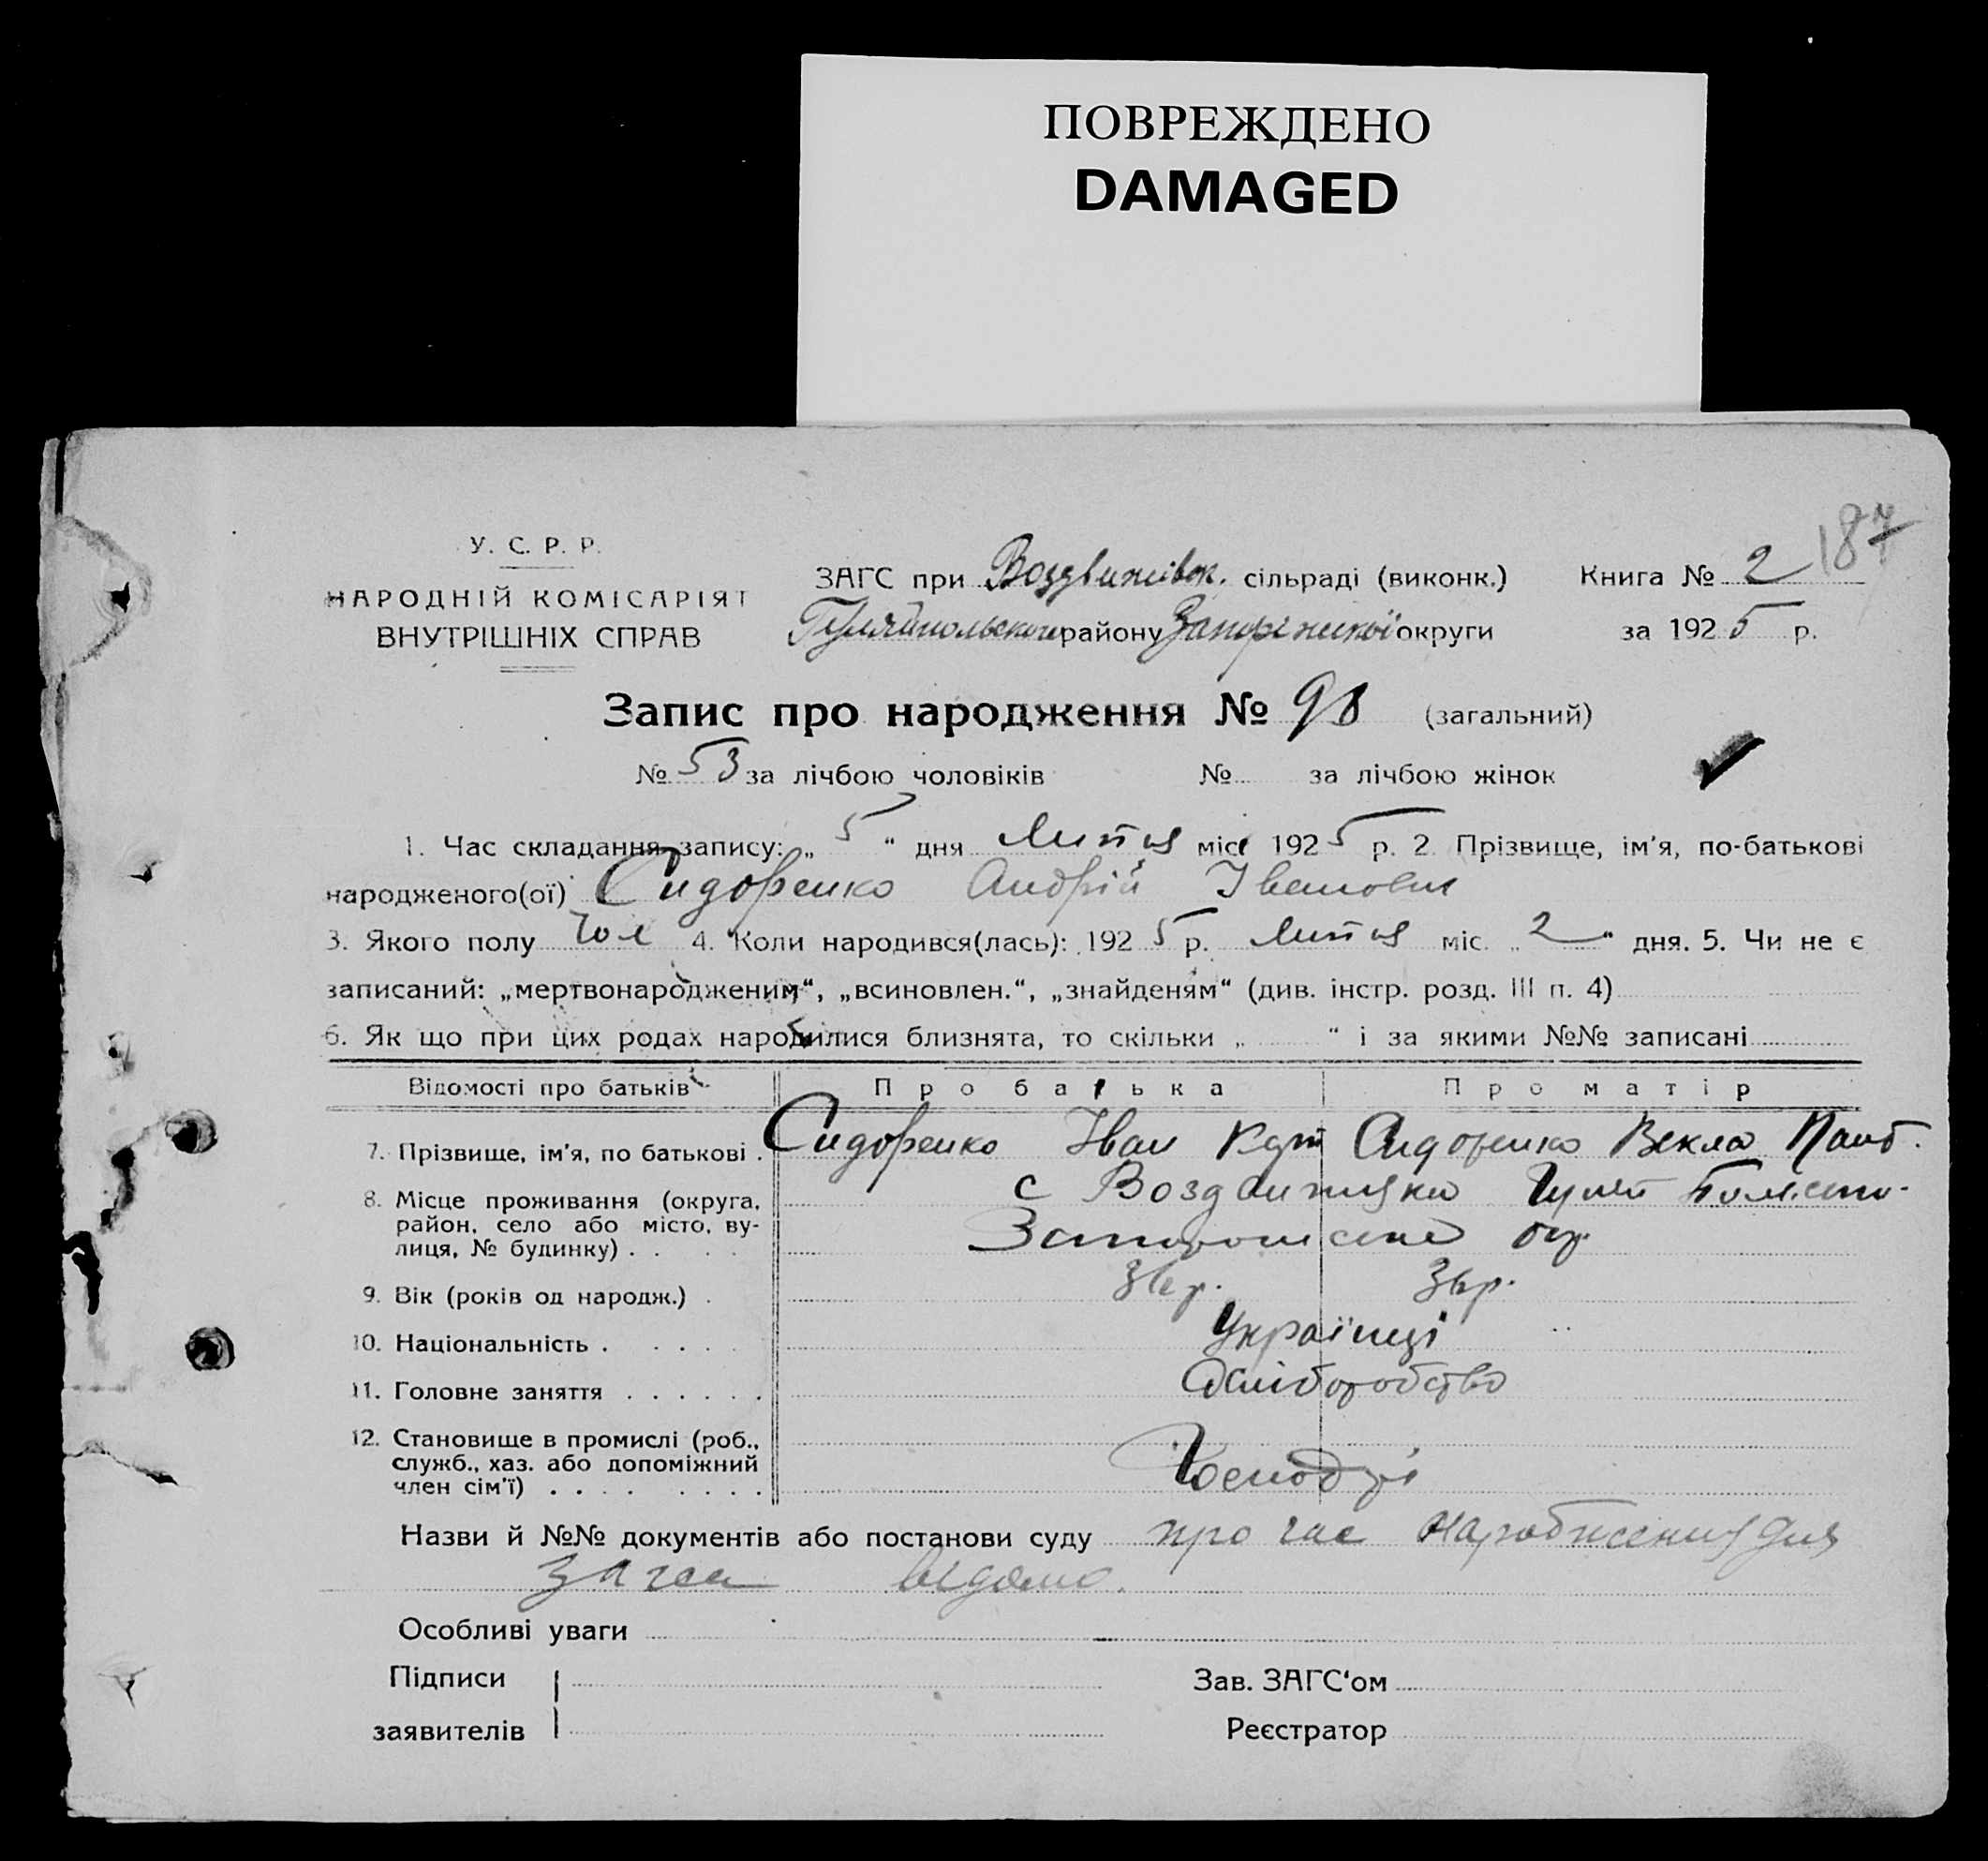 ПОВРЕЖДЕНО
DAMAGED
187
У. С. Р. Р.
НАРОДНІЙ КОМІСАРІЯТ
ВНУТРІШНІХ СПРАВ
ЗАГС при Воздвижівск. сільраді (виконк.) Книга № 2
Гуляйпольского району Запоріжської округи за 1925 р.
Запис про народження № 98 (загальний)
№ 53 за лічбою чоловіків № за лічбою жінок
1. Час складання запису: „ 5 “ дня Липця міся 1925 р. 2 Прізвище, ім'я, по-батькові
народженого(ої) Сидоренко Андрій Іванович
3. Якого полу чол 4. Коли народився(лась): 1925 р. Липця міс. „ 2 “ дня. 5. Чи не є
записаний: „мертвонародженим“, „всиновлен.“, „знайденям“ (див. інстр. розд. III п. 4)
6. Як що при цих родах народилися близнята, то скільки „ “ і за якими №№ записані
Відомості про батьків Про батька Про матір
7. Прізвище, ім'я, по батькові . Сидоренко Іван Сидоренко Векла
8. Місце проживання (округа, с Воздвижка Гуляй
район, село або місто, ву-
лиця, № будинку) . . Запорожское окр.
9. Вік (років од народж.) .
10. Національність . Українці
11. Головне заняття . . . . . . Хліборобство
12. Становище в промислі (роб.,
служб., хаз. або допоміжний
член сім'ї) . . . . . . . . Господарі
Назви й №№ документів або постанови суду про час народження для
загса відомо.
Особливі уваги
Підписи Зав. ЗАГС'ом
заявителів Реєстратор